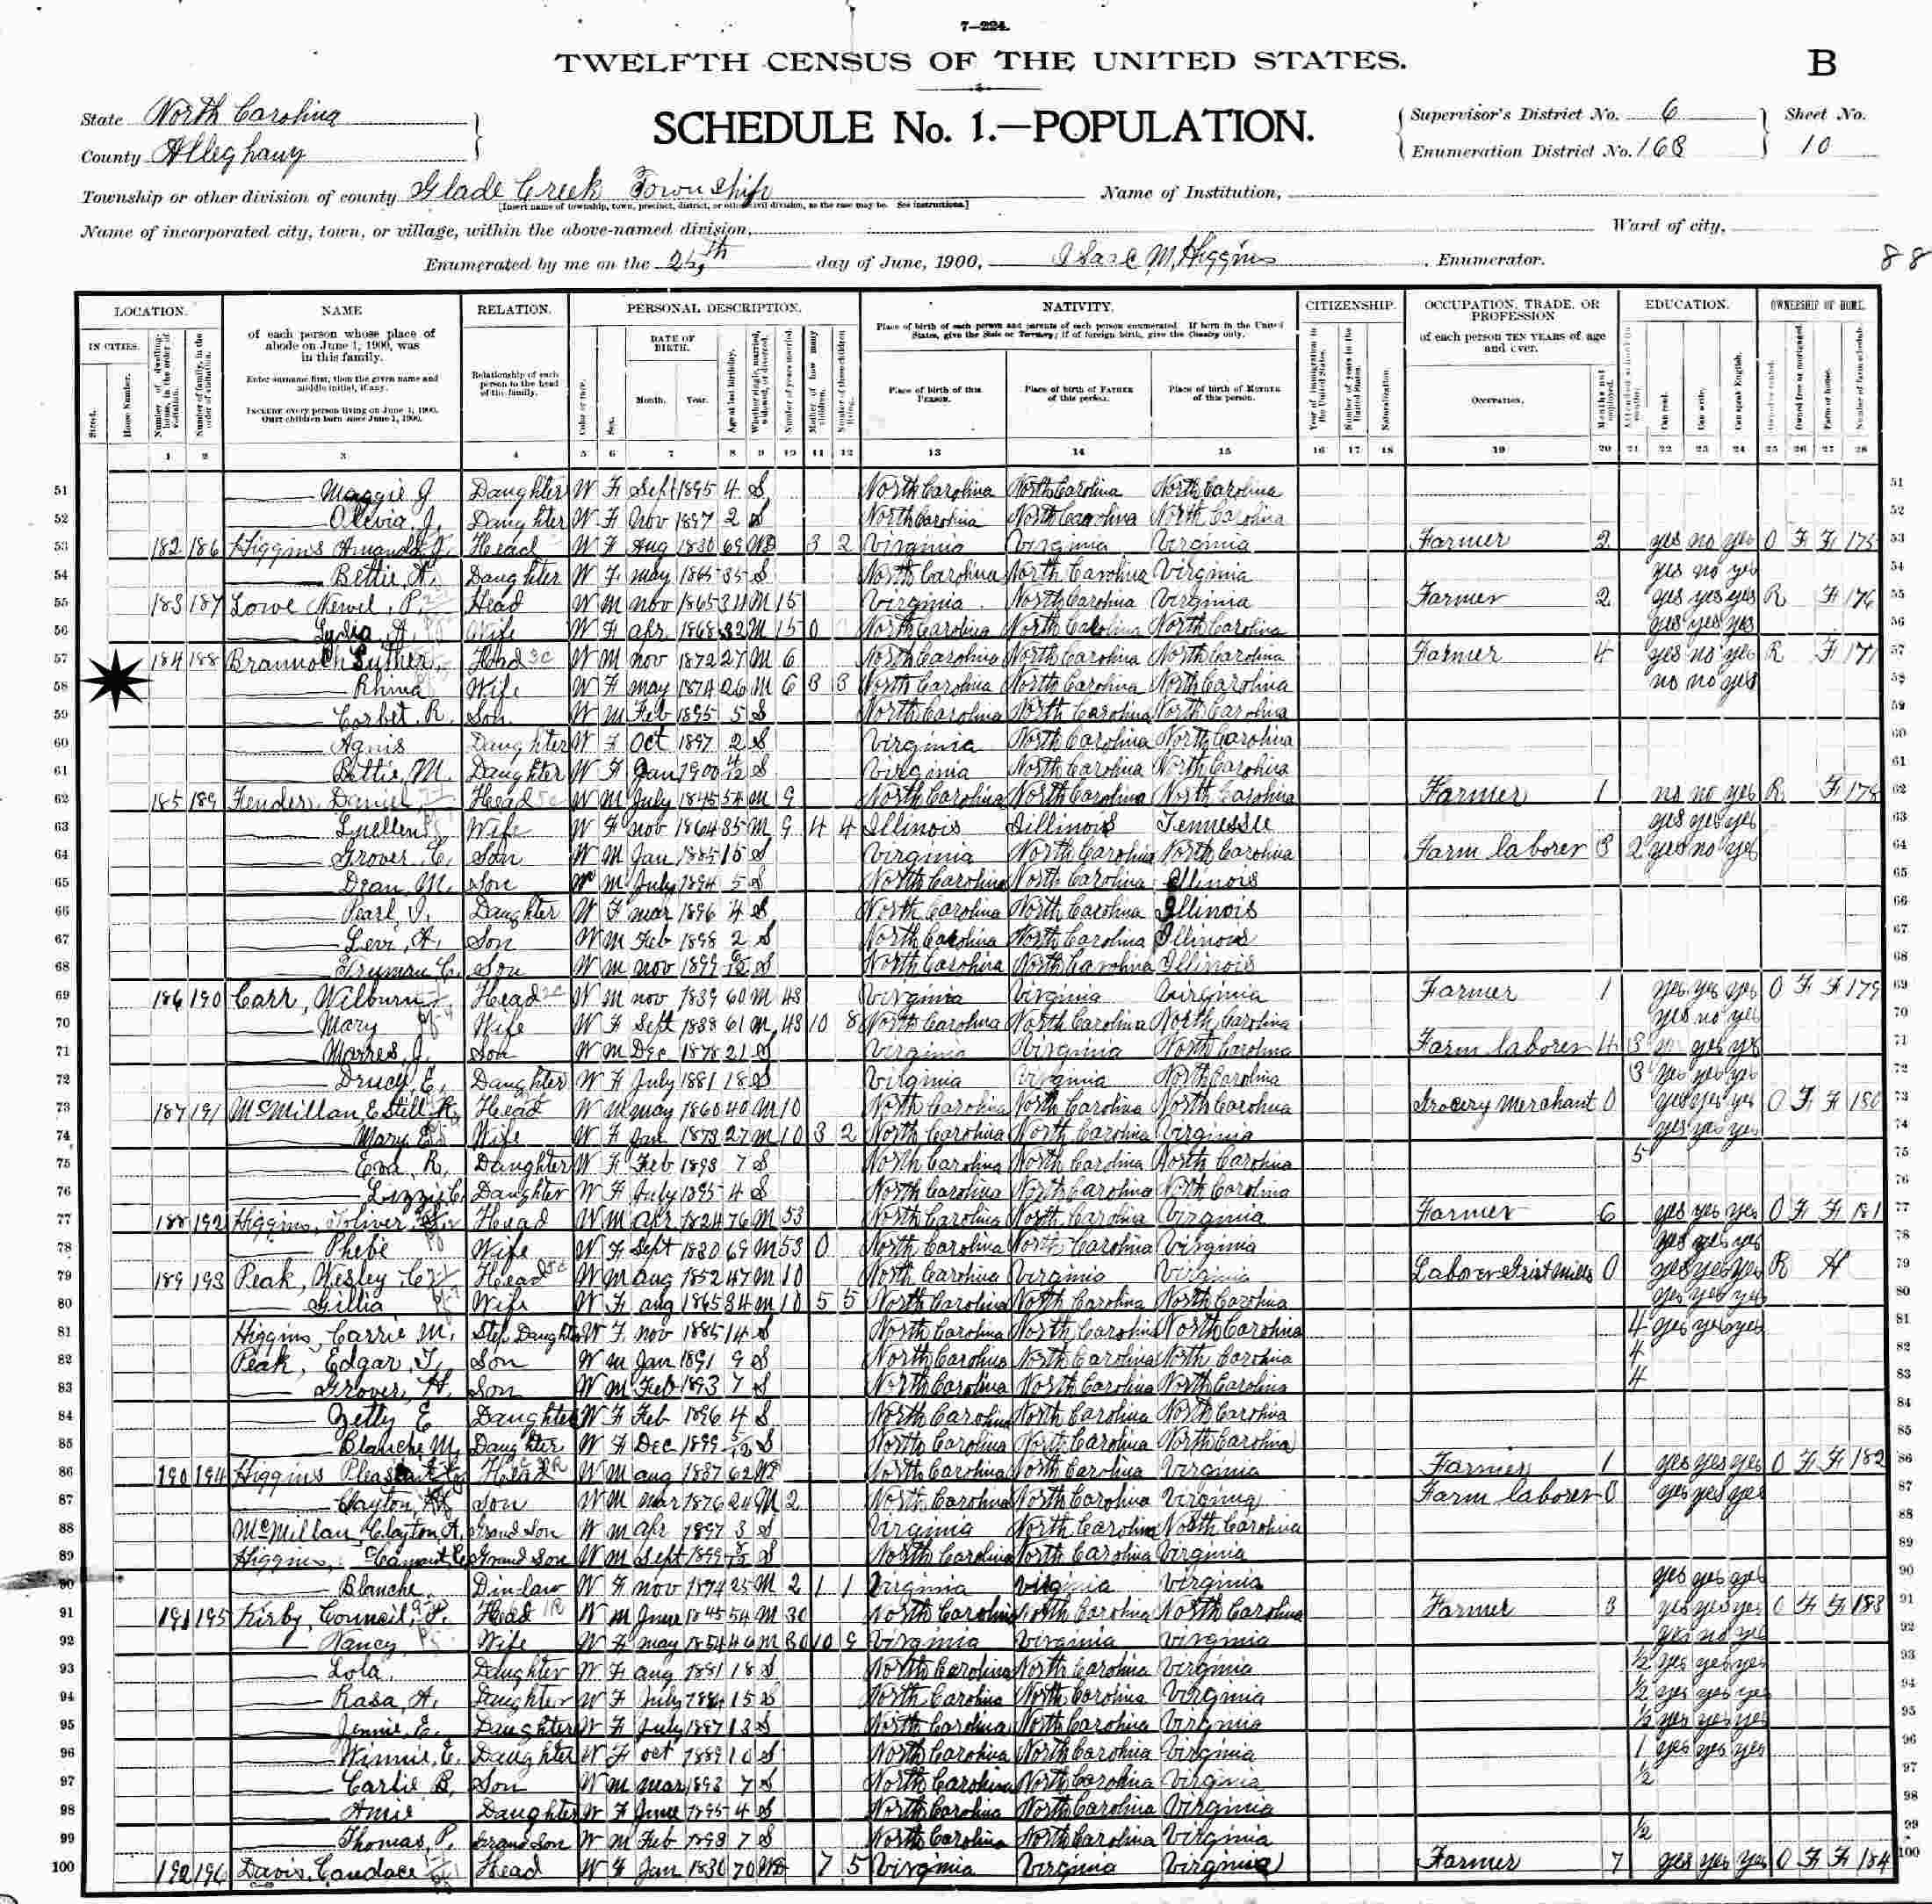 7—224.
TWELFTH CENSUS OF THE UNITED STATES.
B
State North Carolina
County Alleghany
SCHEDULE No. 1.—POPULATION.
Supervisor's District No. 6
Enumeration District No. 168
Sheet No.
10
Township or other division of county Glade Creek Township
[Insert name of township, town, precinct, district, or other civil division, as the case may be. See instructions.]
Name of Institution,
Name of incorporated city, town, or village, within the above-named division,
Ward of city,
Enumerated by me on the 25th day of June, 1900, Isaac M. Higgins, Enumerator.
88
LOCATION. NAME RELATION. PERSONAL DESCRIPTION. NATIVITY. CITIZENSHIP. OCCUPATION, TRADE, OR PROFESSION EDUCATION. OWNERSHIP OF HOME.
IN CITIES.
Street.
House Number.
Number of dwelling-house, in the order of visitation.
Number of family, in the order of visitation.
of each person whose place of abode on June 1, 1900, was in this family.
Enter surname first, then the given name and middle initial, if any.
INCLUDE every person living on June 1, 1900.
OMIT children born since June 1, 1900.
Relationship of each person to the head of the family.
Color or race.
Sex.
DATE OF BIRTH.
Month. Year.
Age at last birthday.
Whether single, married, widowed, or divorced.
Number of years married.
Mother of how many children.
Number of these children living.
Place of birth of each person and parents of each person enumerated. If born in the United States, give the State or Territory; if of foreign birth, give the Country only.
Place of birth of this PERSON.
Place of birth of FATHER of this person.
Place of birth of MOTHER of this person.
Year of immigration to the United States.
Number of years in the United States.
Naturalization.
of each person TEN YEARS of age and over.
OCCUPATION.
Months not employed.
Attended school (in months).
Can read.
Can write.
Can speak English.
Owned or rented.
Owned free or mortgaged.
Farm or house.
Number of farm schedule.
1 2 3 4 5 6 7 8 9 10 11 12 13 14 15 16 17 18 19 20 21 22 23 24 25 26 27 28
51 Maggie J Daughter W F Sept 1895 4 S North Carolina North Carolina North Carolina 51
52 Olevia J. Daughter W F Nov 1897 2 S North Carolina North Carolina North Carolina 52
53 182 186 Higgins Amanda J. Head W F Aug 1830 69 Wd 3 2 Virginia Virginia Virginia Farmer 2 yes no yes O F F 175 53
54 Bettie A. Daughter W F may 1865 35 S North Carolina North Carolina Virginia yes no yes 54
55 183 187 Lowe Newel, P. Head W M nov 1865 34 M 15 Virginia North Carolina Virginia Farmer 2 yes yes yes R F 176 55
56 Lydia A. Wife W F apr 1868 32 M 15 0 North Carolina North Carolina North Carolina yes yes yes 56
57 184 188 Brannock Luther Head W M nov 1872 27 M 6 North Carolina North Carolina North Carolina Farmer 4 yes no yes R F 177 57
58 Rhina Wife W F may 1874 26 M 6 3 3 North Carolina North Carolina North Carolina no no yes 58
59 Corbet, R. Son W M Feb 1895 5 S North Carolina North Carolina North Carolina 59
60 Agnis Daughter W F Oct 1897 2 S Virginia North Carolina North Carolina 60
61 Bettie, M. Daughter W F Jan 1900 4/12 S Virginia North Carolina North Carolina 61
62 185 189 Fender, Daniel Head W M July 1845 54 M 9 North Carolina North Carolina North Carolina Farmer 1 no no yes R F 178 62
63 Luellen Wife W F nov 1864 35 M 9 4 4 Illinois Illinois Tennessee yes yes yes 63
64 Grover, C. Son W M Jan 1885 15 S Virginia North Carolina North Carolina Farm laborer 3 2 yes no yes 64
65 Dean, M. Son W M July 1894 5 S North Carolina North Carolina Illinois 65
66 Pearl, I. Daughter W F mar 1896 4 S North Carolina North Carolina Illinois 66
67 Levi, A. Son W M Feb 1898 2 S North Carolina North Carolina Illinois 67
68 Truman C. Son W M nov 1899 6/12 S North Carolina North Carolina Illinois 68
69 186 190 Carr, Wilburn Head W M nov 1839 60 M 43 Virginia Virginia Virginia Farmer 1 yes yes yes O F F 179 69
70 Mary Wife W F Sept 1838 61 M 43 10 8 North Carolina North Carolina North Carolina yes no yes 70
71 J. Son W M Dec 1878 21 S Virginia Virginia North Carolina Farm laborer 4 3 yes yes 71
72 Drucy, E. Daughter W F July 1881 18 S Virginia Virginia North Carolina 3 yes yes yes 72
73 187 191 McMillan Estill R. Head W M may 1860 40 M 10 North Carolina North Carolina North Carolina Grocery Merchant 0 yes yes yes O F F 180 73
74 Mary E. Wife W F Jan 1873 27 M 10 3 2 North Carolina North Carolina Virginia yes yes yes 74
75 Eva, R. Daughter W F Feb 1893 7 S North Carolina North Carolina North Carolina 5 75
76 Lizzie C. Daughter W F July 1895 4 S North Carolina North Carolina North Carolina 76
77 188 192 Higgins, Toliver Head W M apr 1824 76 M 53 North Carolina North Carolina Virginia Farmer 6 yes yes yes O F F 181 77
78 Phebe Wife W F Sept 1830 69 M 53 0 North Carolina North Carolina Virginia yes yes yes 78
79 189 193 Peak, Wesley C. Head W M aug 1852 47 M 10 North Carolina Virginia Virginia Laborer Grist Mills 0 yes yes yes R H 79
80 Gillia Wife W F aug 1865 34 M 10 5 5 North Carolina North Carolina North Carolina yes yes yes 80
81 Higgins, Carrie M. Step Daughter W F nov 1885 14 S North Carolina North Carolina North Carolina 4 yes yes yes 81
82 Peak, Edgar T. Son W M Jan 1891 9 S North Carolina North Carolina North Carolina 4 82
83 Grover, H. Son W M Feb 1893 7 S North Carolina North Carolina North Carolina 4 83
84 Zetty E Daughter W F Feb 1896 4 S North Carolina North Carolina North Carolina 84
85 Blanche M. Daughter W F Dec 1899 5/12 S North Carolina North Carolina North Carolina 85
86 190 194 Higgins Pleasant Head W M aug 1837 62 Wd North Carolina North Carolina Virginia Farmer 1 yes yes yes O F F 182 86
87 Clayton Son W M mar 1876 24 M 2 North Carolina North Carolina Virginia Farm laborer 0 yes yes yes 87
88 McMillan Clayton A. Grand Son W M apr 1897 3 S Virginia North Carolina North Carolina 88
89 Higgins, Grand Son W M Sept 1899 8/12 S North Carolina North Carolina Virginia 89
90 Blanche D in law W F nov 1874 25 M 2 1 1 Virginia Virginia Virginia yes yes yes 90
91 191 195 Kirby, Council, P. Head W M June 1845 54 M 30 North Carolina North Carolina North Carolina Farmer 3 yes yes yes O F F 183 91
92 Nancy Wife W F may 1854 46 M 30 10 9 Virginia Virginia Virginia yes no yes 92
93 Lola Daughter W F aug 1881 18 S North Carolina North Carolina Virginia 1/2 yes yes yes 93
94 Rasa, A. Daughter W F July 1884 15 S North Carolina North Carolina Virginia 1/2 yes yes yes 94
95 Jennie, E. Daughter W F July 1887 13 S North Carolina North Carolina Virginia 1/2 yes yes yes 95
96 Winnie, E. Daughter W F oct 1889 10 S North Carolina North Carolina Virginia 1 yes yes yes 96
97 Carlie B. Son W M mar 1893 7 S North Carolina North Carolina Virginia 1/2 97
98 Amie Daughter W F June 1895 4 S North Carolina North Carolina Virginia 98
99 Thomas, P. Grand Son W M Feb 1893 7 S North Carolina North Carolina Virginia 1/2 99
100 192 196 Davis, Candace Head W F Jan 1830 70 Wd 7 5 Virginia Virginia Virginia Farmer 7 yes yes yes O F F 184 100